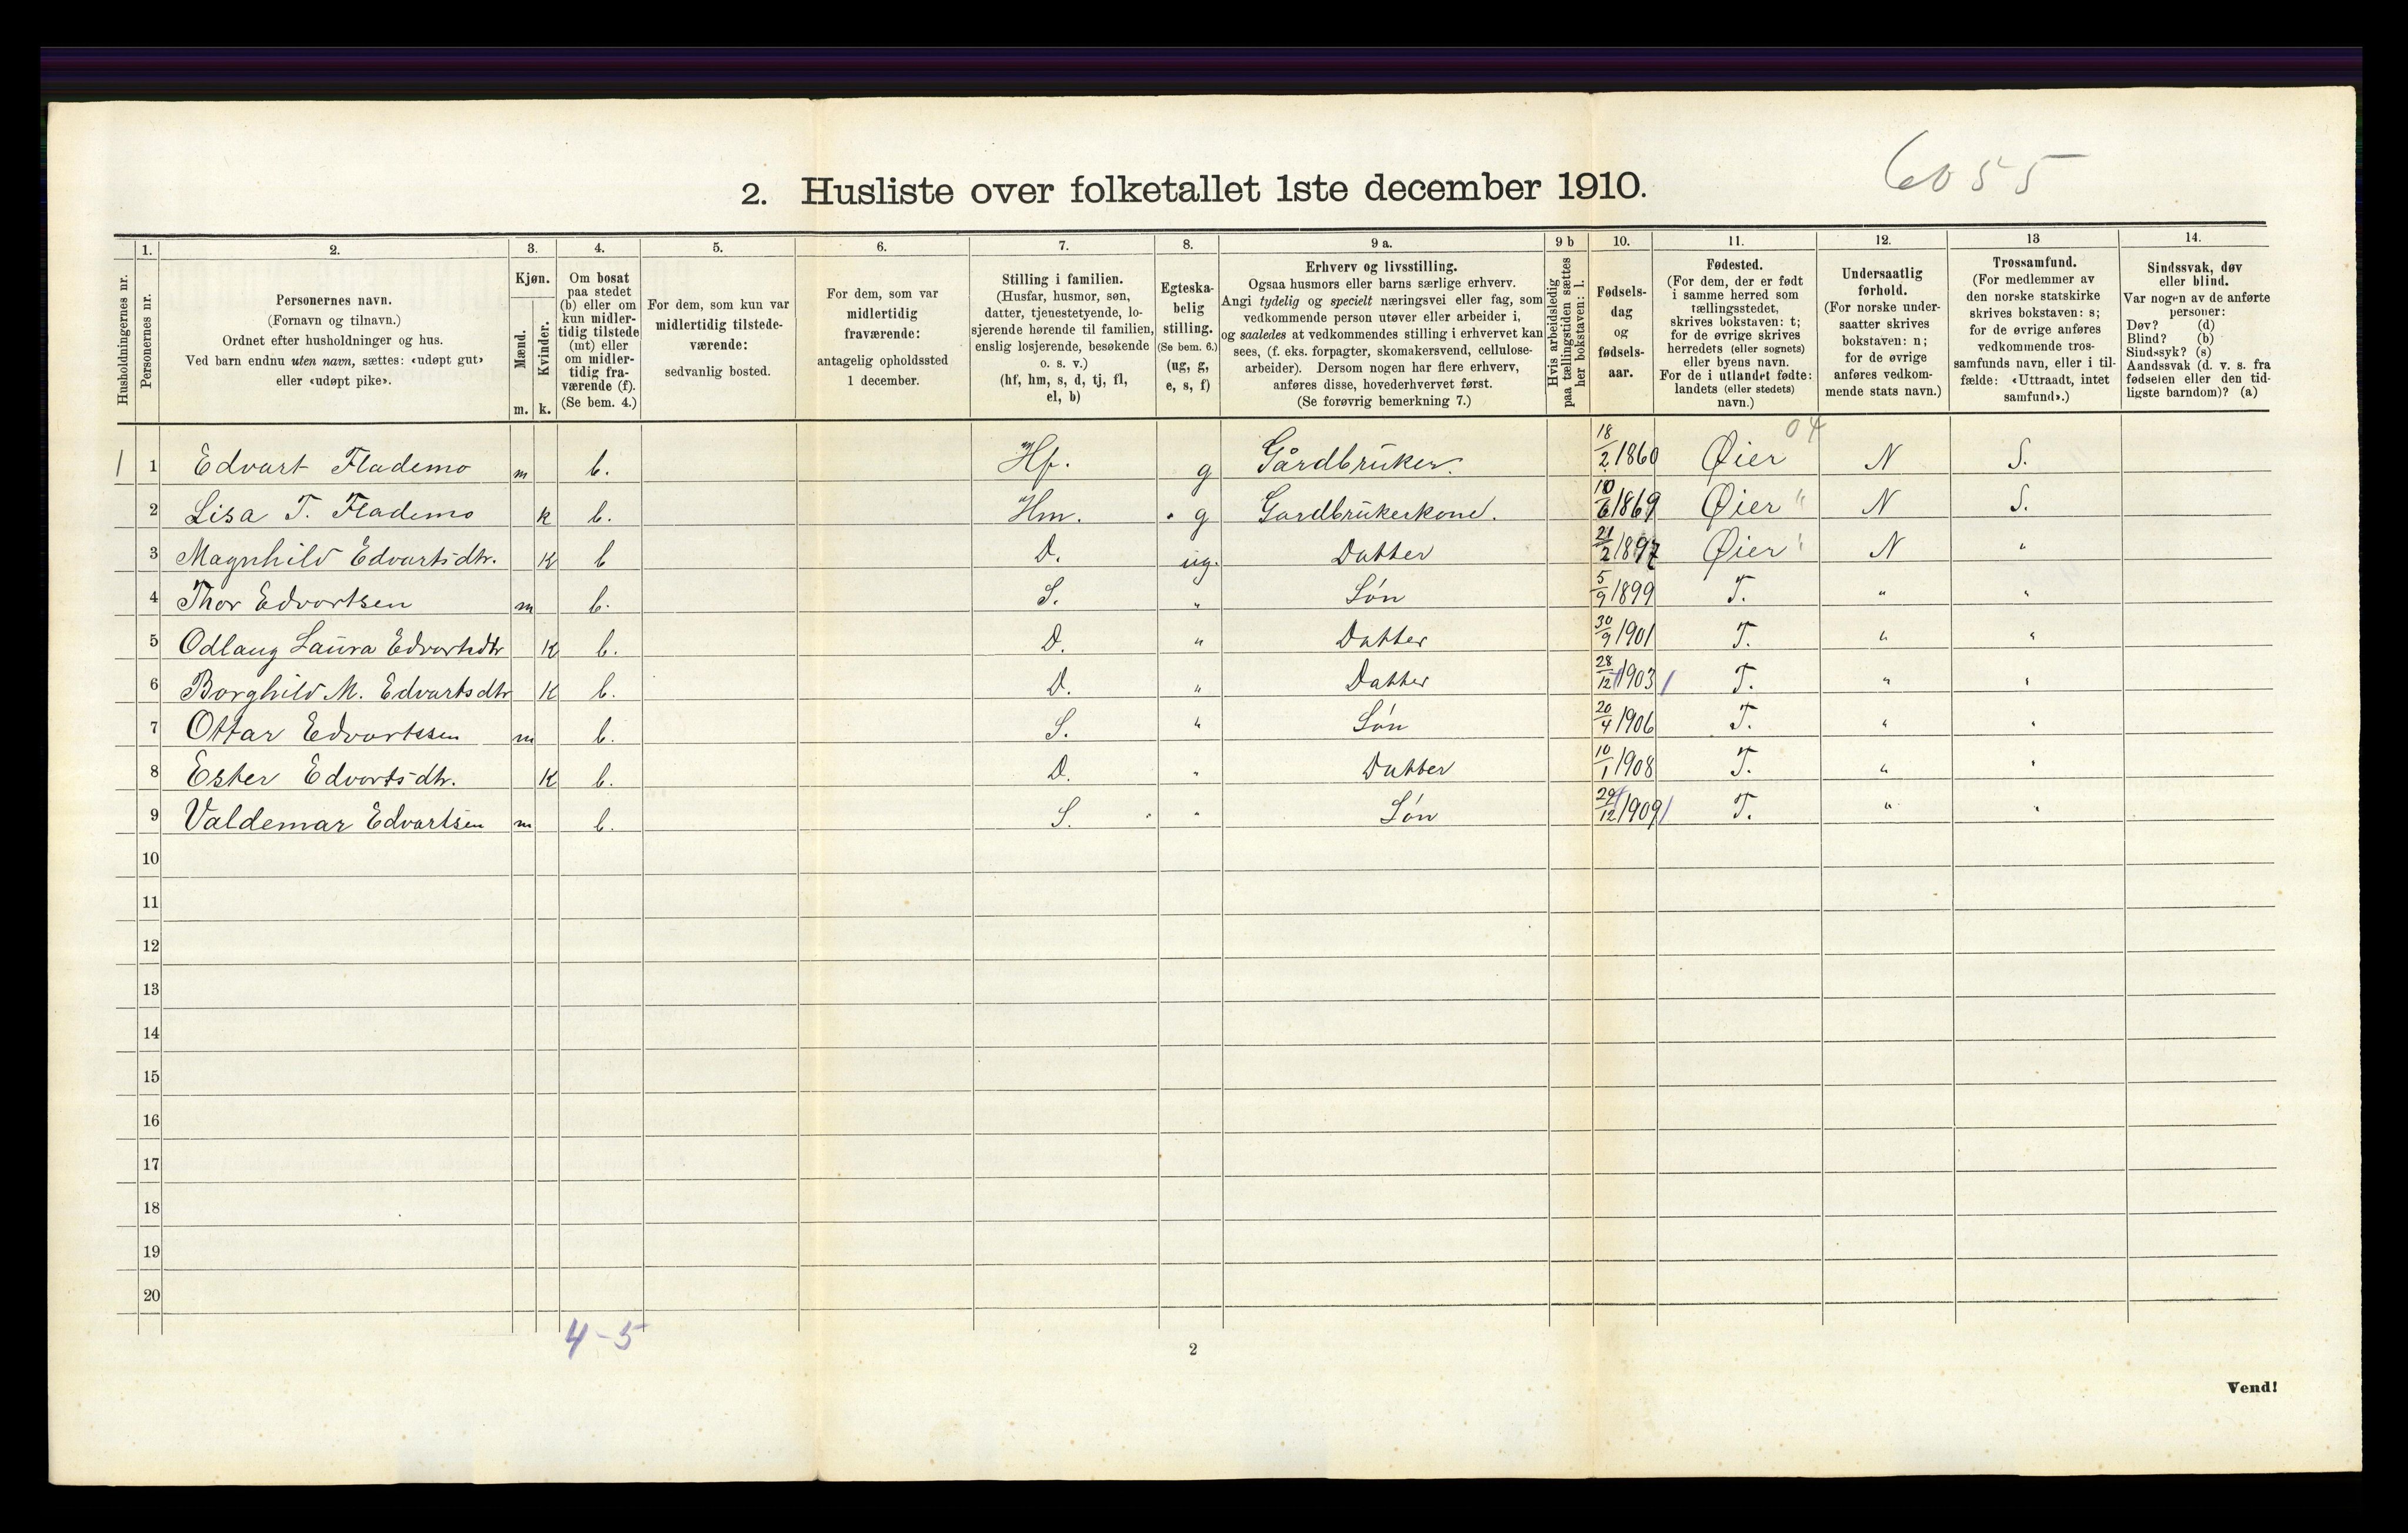 6055
2. Husliste over folketallet 1ste december 1910.
1. 2. 3. 4. 5. 6. 7. 8. 9 a. 9 b 10. 11. 12. 13 14.
Husholdningernes nr.
Personernes nr.
Personernes navn.
(Fornavn og tilnavn.)
Ordnet efter husholdninger og hus.
Ved barn endnu uten navn, sættes: «udøpt gut»
eller «udøpt pike».
Kjøn.
Mænd.
Kvinder.
m. k.
Om bosat
paa stedet
(b) eller om
kun midler-
tidig tilstede
(mt) eller
om midler-
tidig fra-
værende (f).
(Se bem. 4.)
For dem, som kun var
midlertidig tilstede-
værende:
sedvanlig bosted.
For dem, som var
midlertidig
fraværende:
antagelig opholdssted
1 december.
Stilling i familien.
(Husfar, husmor, søn,
datter, tjenestetyende, lo-
sjerende hørende til familien,
enslig losjerende, besøkende
o. s. v.)
(hf, hm, s, d, tj, fl,
el, b)
Egteska-
belig
stilling.
(Se bem. 6.)
(ug, g,
e, s, f)
Erhverv og livsstilling.
Ogsaa husmors eller barns særlige erhverv.
Angi tydelig og specielt næringsvei eller fag, som
vedkommende person utøver eller arbeider i,
og saaledes at vedkommendes stilling i erhvervet kan
sees, (f. eks. forpagter, skomakersvend, cellulose-
arbeider). Dersom nogen har flere erhverv,
anføres disse, hovederhvervet først.
(Se forøvrig bemerkning 7.)
Hvis arbeidsledig
paa tællingstiden sættes
her bokstaven: l.
Fødsels-
dag
og
fødsels-
aar.
Fødested.
(For dem, der er født
i samme herred som
tællingsstedet,
skrives bokstaven: t;
for de øvrige skrives
herredets (eller sognets)
eller byens navn.
For de i utlandet fødte:
landets (eller stedets)
navn.)
Undersaatlig
forhold.
(For norske under-
saatter skrives
bokstaven: n;
for de øvrige
anføres vedkom-
mende stats navn.)
Trossamfund.
(For medlemmer av
den norske statskirke
skrives bokstaven: s;
for de øvrige anføres
vedkommende tros-
samfunds navn, eller i til-
fælde: «Uttraadt, intet
samfund».)
Sindssvak, døv
eller blind.
Var nogen av de anførte
personer:
Døv? (d)
Blind? (b)
Sindssyk? (s)
Aandssvak (d. v. s. fra
fødselen eller den tid-
ligste barndom)? (a)
04
1 1 Edvart Flademo m b. Hf. g Gårdbruker. 18/2 1860 Øier N S.
2 Lisa T. Flademo k b. Hm. g Gardbrukerkone. 10/6 1869 Øier " N S.
3 Magnhild Edvartsdtr. K b D. ug. Datter 21/2 1897 Øier " N "
4 Thor Edvartsen m b. S. " Søn 5/9 1899 T. " "
5 Odlaug Laura Edvartsdtr K b. D. " Datter 30/9 1901 T. " "
6 Borghild M. Edvartsdtr K b. D. " Datter 28/12 1903 T. " "
7 Ottar Edvartssen m b. S. " Søn 20/4 1906 T. " "
8 Ester Edvartsdtr. K b. D. " Datter 10/1 1908 T. " "
9 Valdemar Edvartsen m b. S. " Søn 29/12 1909 T. " "
10
11
12
13
14
15
16
17
18
19
20
4-5
2
Vend!